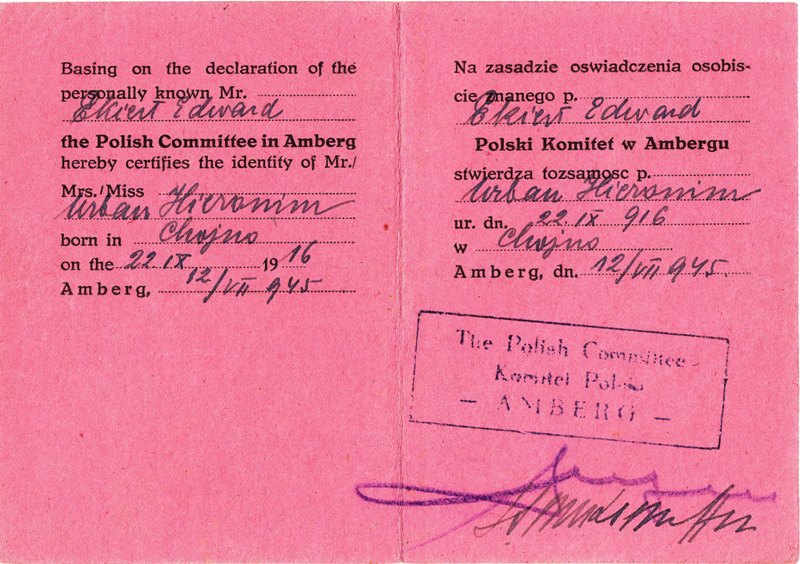 Basing on the declaration of the
personally known Mr.
Ekiert Edward
the Polish Committee in Amberg
hereby certifies the identity of Mr./
Mrs./Miss
Urban Hieronim
born in Chojno
on the 22 IX 1916
Amberg, 12/VII 945
Na zasadzie oswiadczenia osobis-
cie znanego p.
Ekiert Edward
Polski Komitet w Ambergu
stwierdza tozsamosc p.
Urban Hieronim
ur. dn. 22 IX 916
w Chojno
Amberg, dn. 12/VII 945.
The Polish Committee
Komitet Polski
— AMBERG —